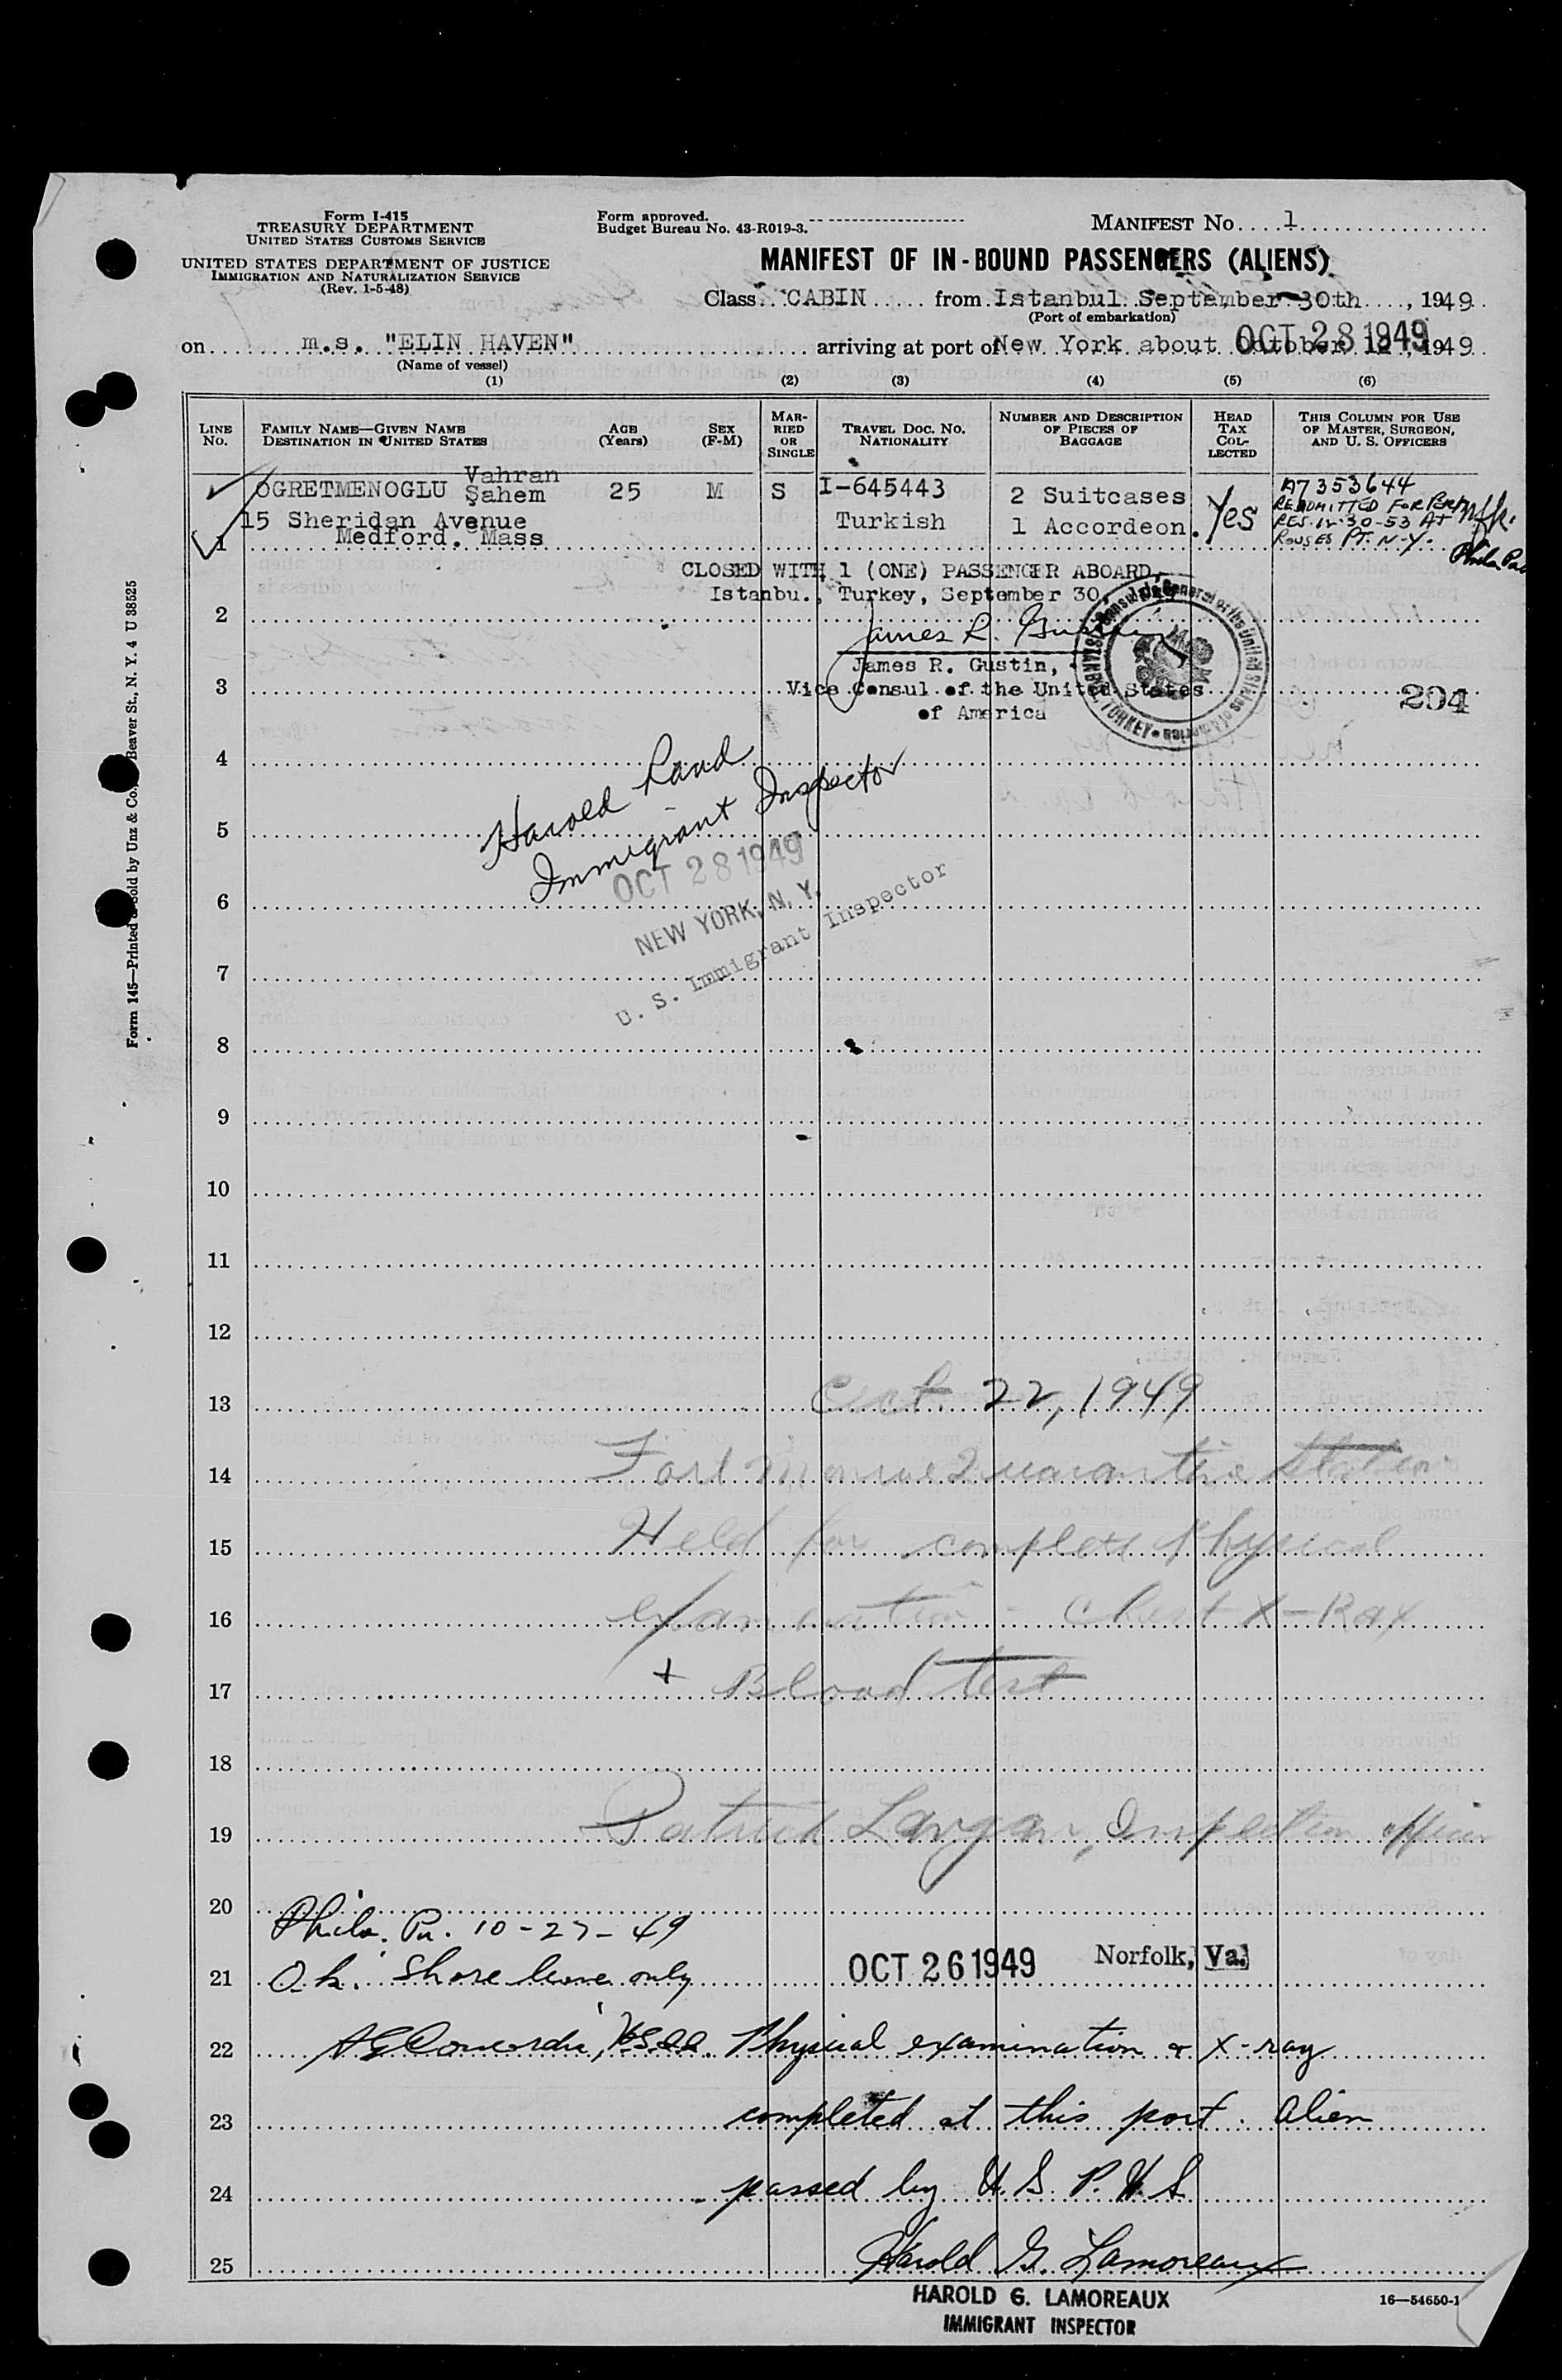 Form I-415
TREASURY DEPARTMENT
UNITED STATES CUSTOMS SERVICE
UNITED STATES DEPARTMENT OF JUSTICE
IMMIGRATION AND NATURALIZATION SERVICE
(Rev. 1-5-48)
Form approved.
Budget Bureau No. 43-R019-3.
MANIFEST No. 1
MANIFEST OF IN-BOUND PASSENGERS (ALIENS)
Class CABIN from Istanbul September 30th, 1949
(Port of embarkation)
on m.s. "ELIN HAVEN" arriving at port of New York about October 12, 1949
OCT 28 1949
(Name of vessel)
(1) (2) (3) (4) (5) (6)
LINE No. FAMILY NAME—GIVEN NAME DESTINATION IN UNITED STATES AGE (Years) SEX (F-M) MARRIED OR SINGLE TRAVEL DOC. NO. NATIONALITY NUMBER AND DESCRIPTION OF PIECES OF BAGGAGE HEAD TAX COLLECTED THIS COLUMN FOR USE OF MASTER, SURGEON, AND U. S. OFFICERS
Vahran
OGRETMENOGLU Şahem 25 M S I-645443 2 Suitcases Yes A7353644
15 Sheridan Avenue Turkish 1 Accordeon. READMITTED FOR PERM
1 Medford. Mass RES. 12-30-53 AT
ROUSES PT. N-Y.
Phila Pa
CLOSED WITH 1 (ONE) PASSENGER ABOARD
Istanbu., Turkey, September 30,
2 James R. Gustin
James R. Gustin,
3 Vice Consul of the United States 204
of America
Consulate General of the United States of America ISTANBUL, TURKEY
4
Harold Land
5 Immigrant Inspector
OCT 28 1949
6
NEW YORK, N.Y.
7 U. S. Immigrant Inspector
8
9
10
11
12
13 Oct. 22, 1949
14 Fort Monroe Quarantine Station
15 Held for complete physical
16 examination - Chest X-Ray
17 + Blood test
18
19 Patrick Langan, Inspection officer
20
Phila. Pa. 10-27-49
21 O.k. Shore leave only OCT 26 1949 Norfolk, Va.
22 Physical examination & X-ray
23 completed at this port. Alien
24 passed by U.S.P.H.S.
25 Harold G. Lamoreaux
HAROLD G. LAMOREAUX
IMMIGRANT INSPECTOR
16—54650-1
Form 145—Printed & Sold by Unz & Co., Beaver St., N. Y. 4 U 38525